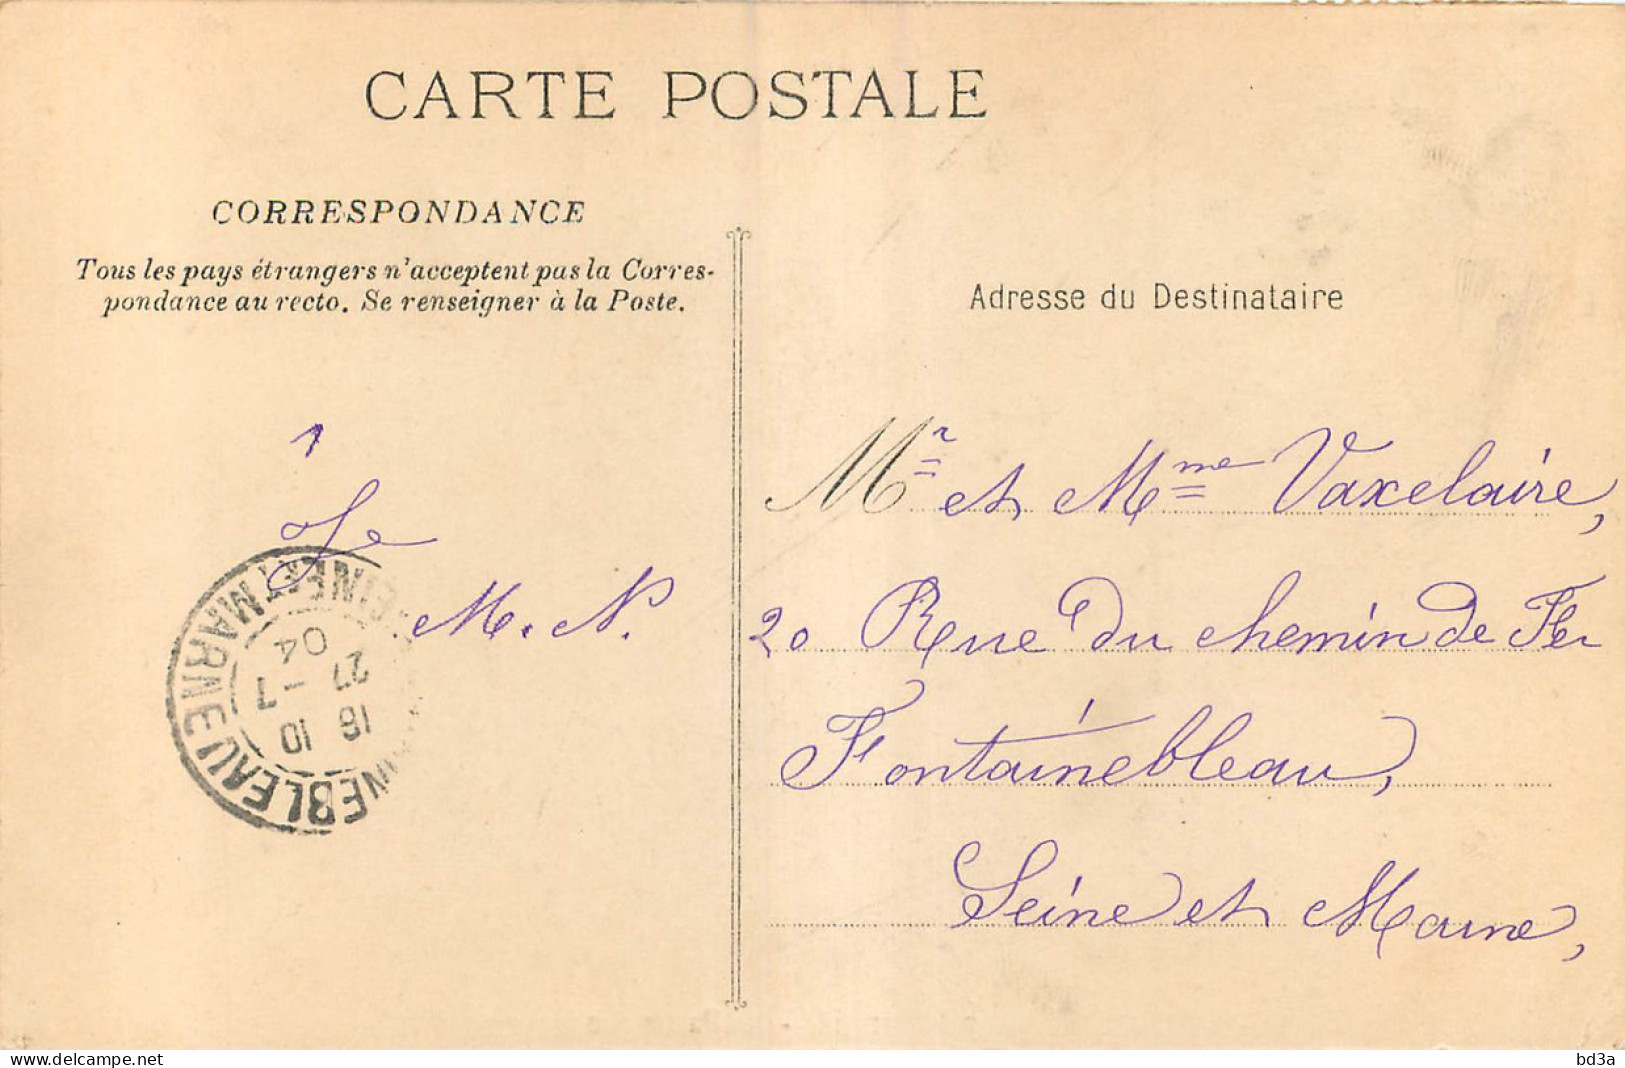 CARTE POSTALE
CORRESPONDANCE
Tous les pays étrangers n'acceptent pas la Corres-
pondance au recto. Se renseigner à la Poste.
Adresse du Destinataire
1
Je
M. N.
Mr et Mme Vaxelaire,
20 Rue du chemin de Fer
Fontainebleau,
Seine et Marne,
NEBLEAU
SEINE ET MARNE
16 10
27 - 7
04
www.delcampe.net
bd3a